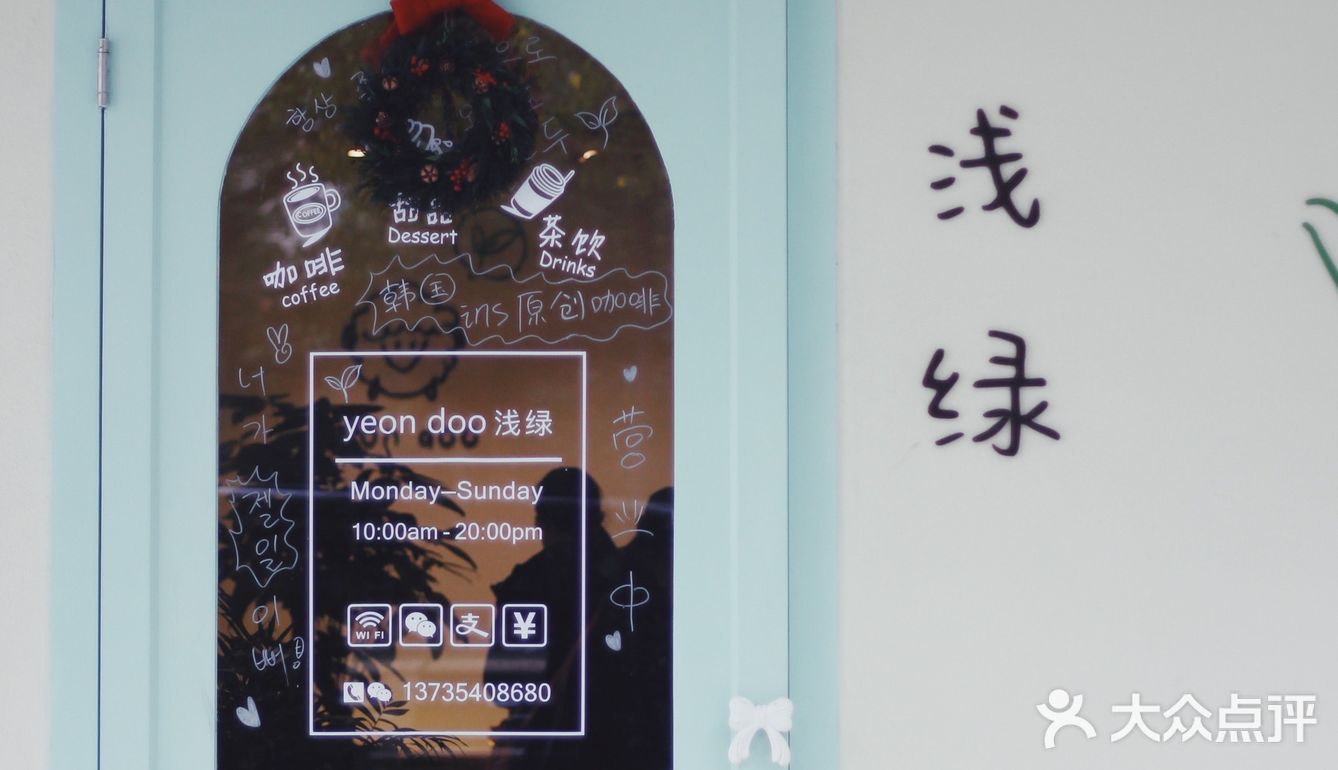 항상
으로
두
COFFEE
咖啡
coffee
甜品
Dessert
茶饮
Drinks
韩国
ins原创咖啡
너
가
젤
일
이
뻐!
yeon doo 浅绿
Monday—Sunday
10:00am - 20:00pm
WI FI
支
¥
13735408680
营
业
中
浅
绿
大众点评